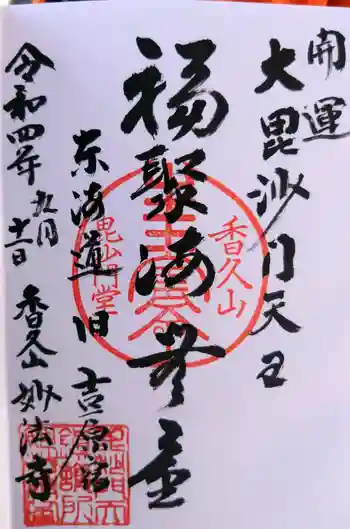 開運
大毘沙門天王
福聚海無量
東海道旧吉原宿
令和四年九月十一日
香久山妙法寺
香久山
毘沙門堂